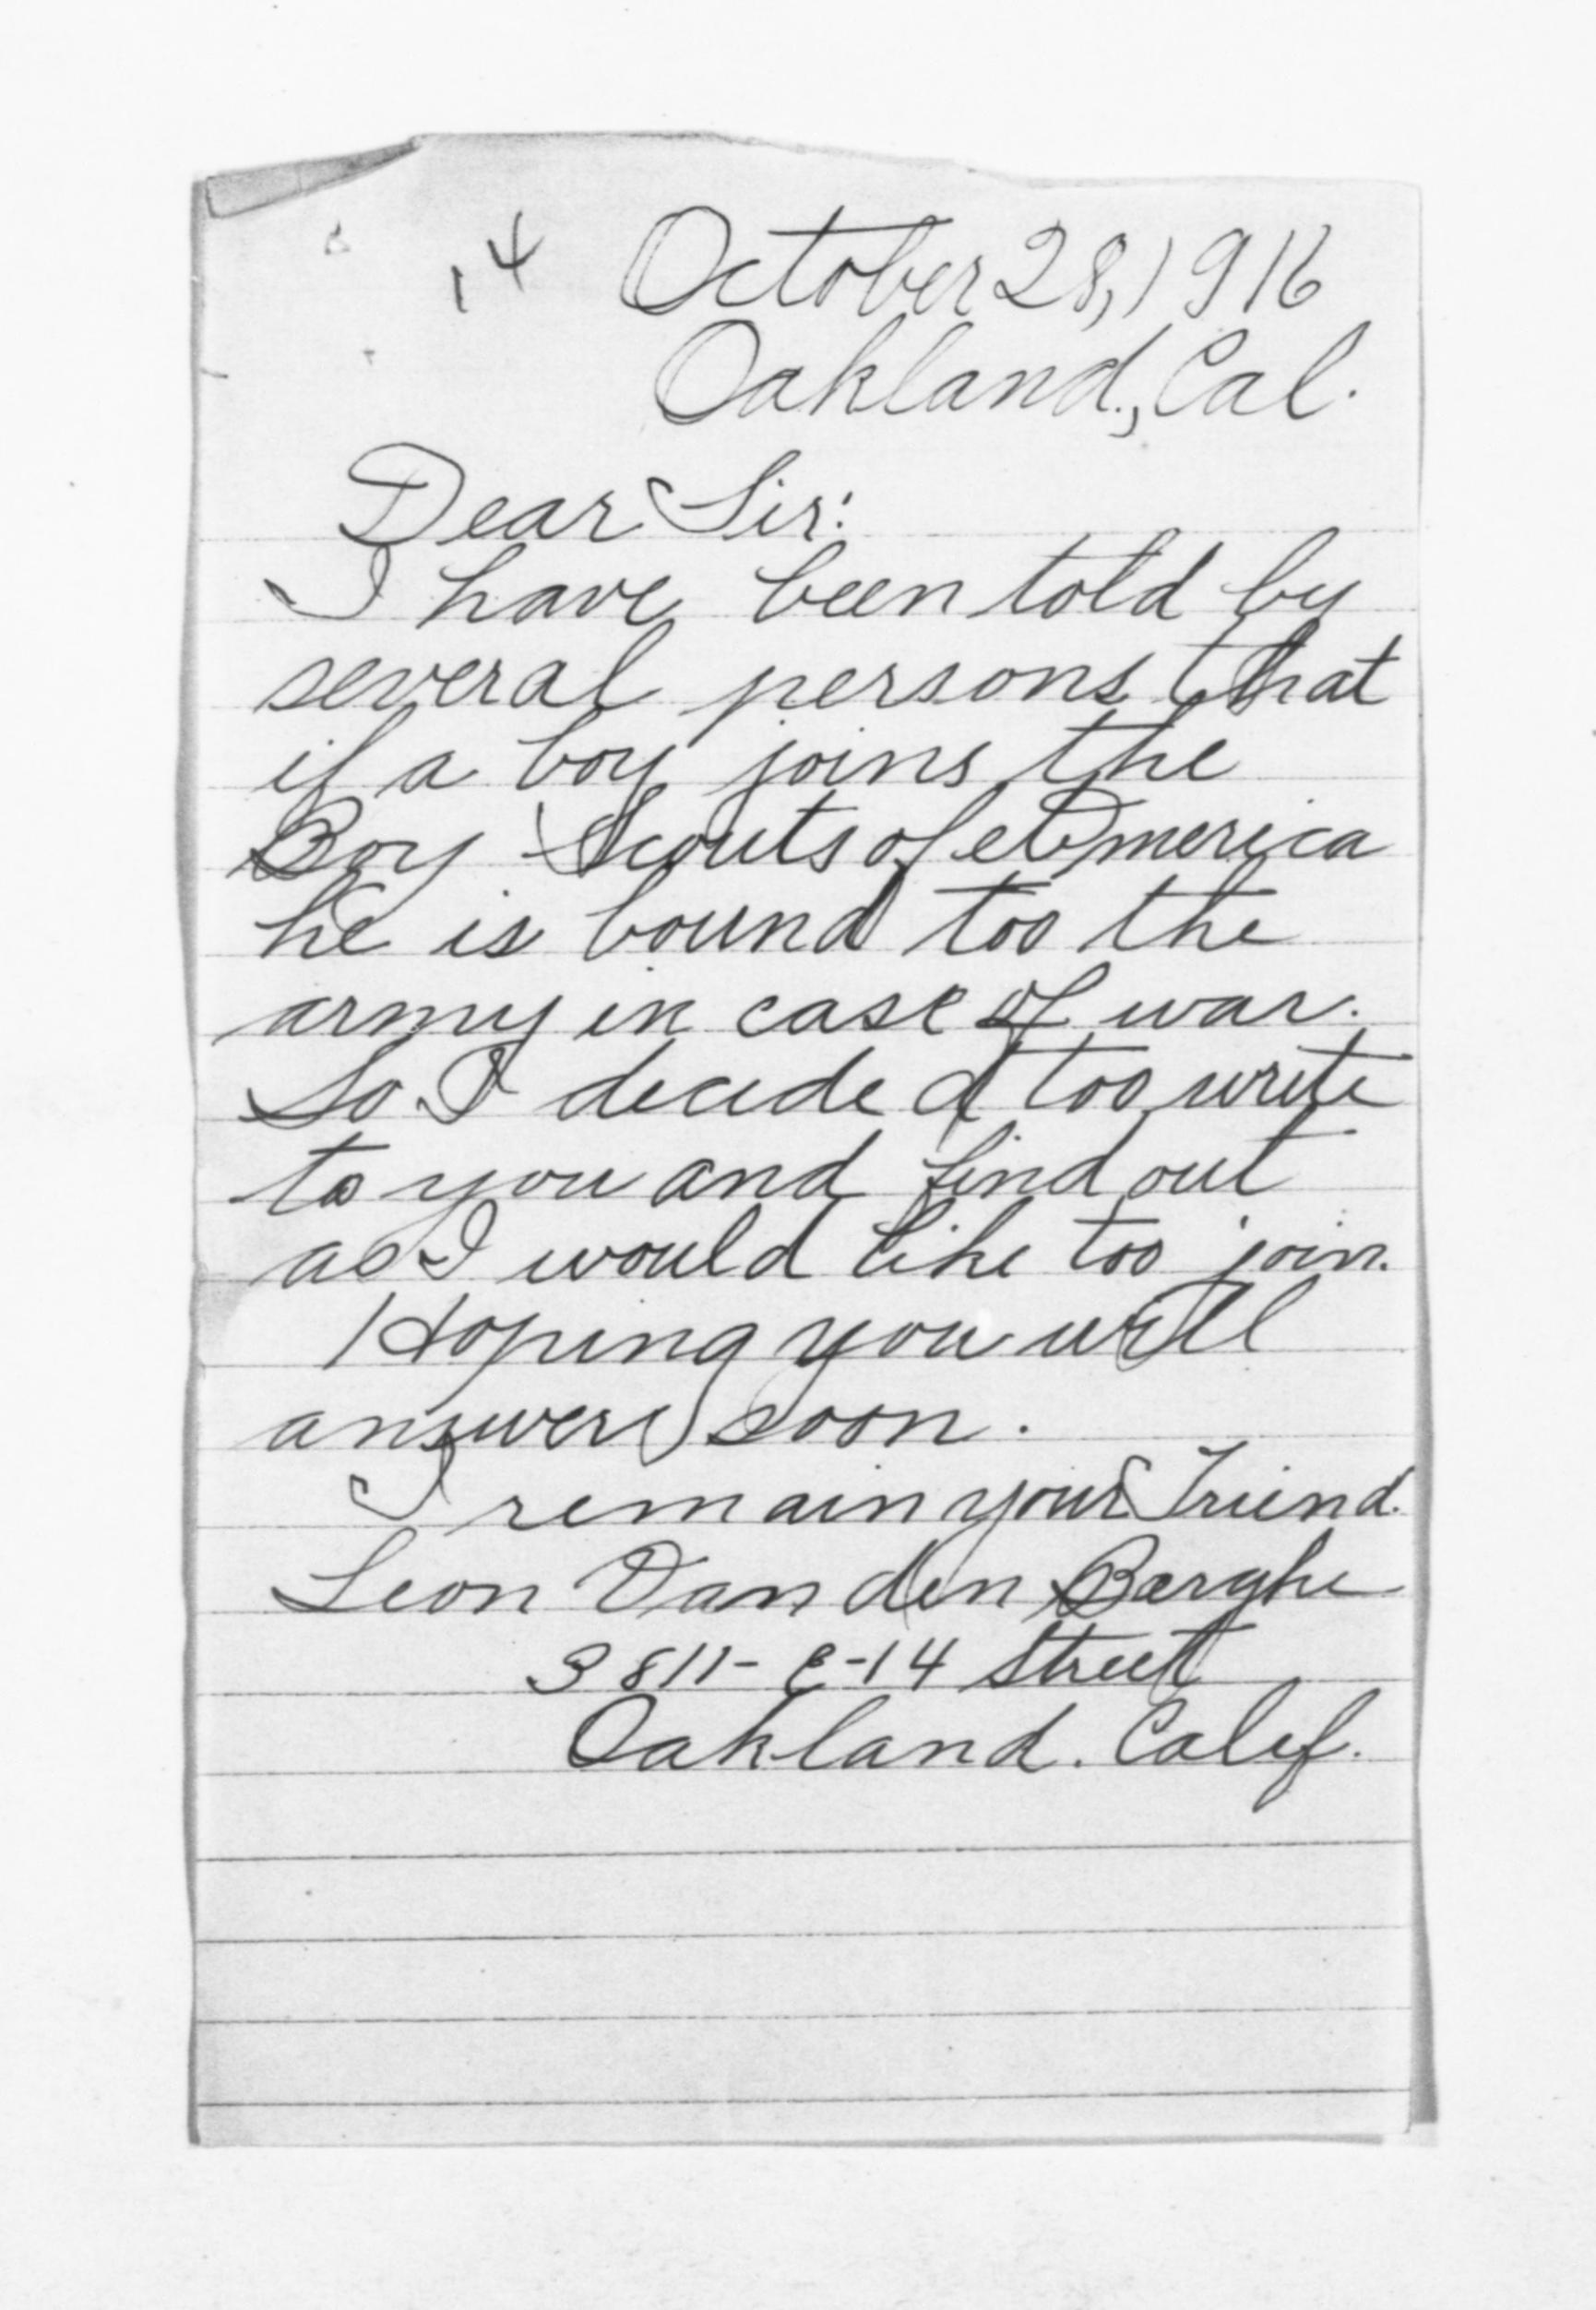 14 October 28, 1916
Oakland., Cal.
Dear Sir:
I have been told by
several persons that
if a boy joins the
Boy Scouts of America
he is bound too the
army in case of war.
So I decided too write
to you and find out
as I would like too join.
Hoping you will
answer soon.
I remain your Friend.
Leon Van den Berghe
3811-E-14 Street
Oakland. Calif.